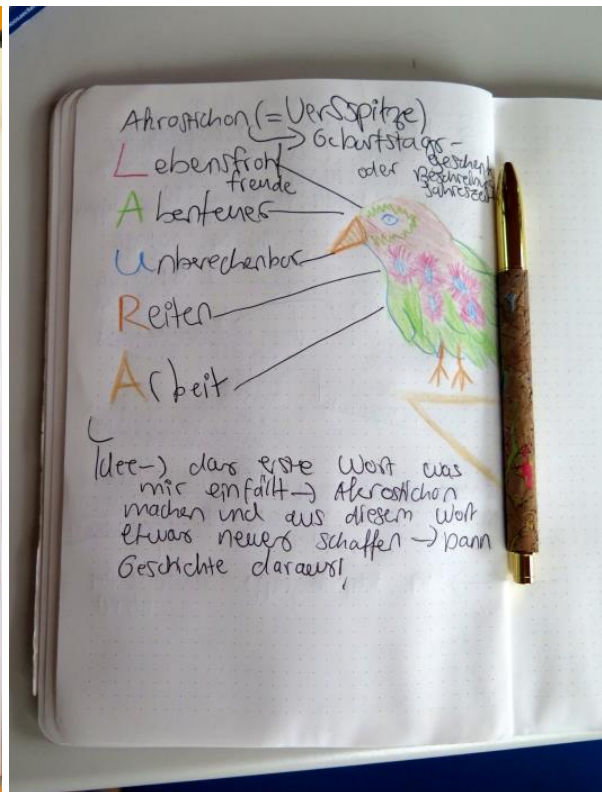 Akrostichon (= Versspitze)
→ Geburtstags-
oder geschenk
Beschreibung
Jahreszeit
Lebensfroh
freude
Abenteuer
Unberechenbar
Reiten
Arbeit
Idee → das erste Wort was
mir einfällt → Akrostichon
machen und aus diesem Wort
etwas neues schaffen → Dann
Geschichte daraus!